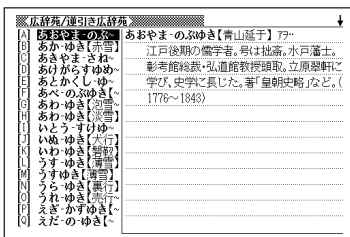 広辞苑/逆引き広辞苑
[A] あおやま-のぶ~
[B] あか-ゆき【赤雪】
[C] あきやま-さね~
[D] あけがらすゆめ~
[E] あとかくし-ゆ~
[F] あべ-のぶゆき【~
[G] あわ-ゆき【泡雪~
[H] あわ-ゆき【淡雪】
[I] いとう-すけゆ~
[J] いぬ-ゆき【犬行】
[K] いわ-ゆき
[L] うす-ゆき【薄雪】
[M] うすゆき【薄雪】
[N] うら-ゆき【裏行】
[O] うれ-ゆき【売行~
[P] えぎ-かずゆき【~
[Q] えだ-の-ゆき【~
あおやま-のぶゆき【青山延于】アヲ‥
江戸後期の儒学者。号は拙斎。水戸藩士。
彰考館総裁・弘道館教授頭取。立原翠軒に
学び、史学に長じた。著「皇朝史略」など。(
1776~1843)